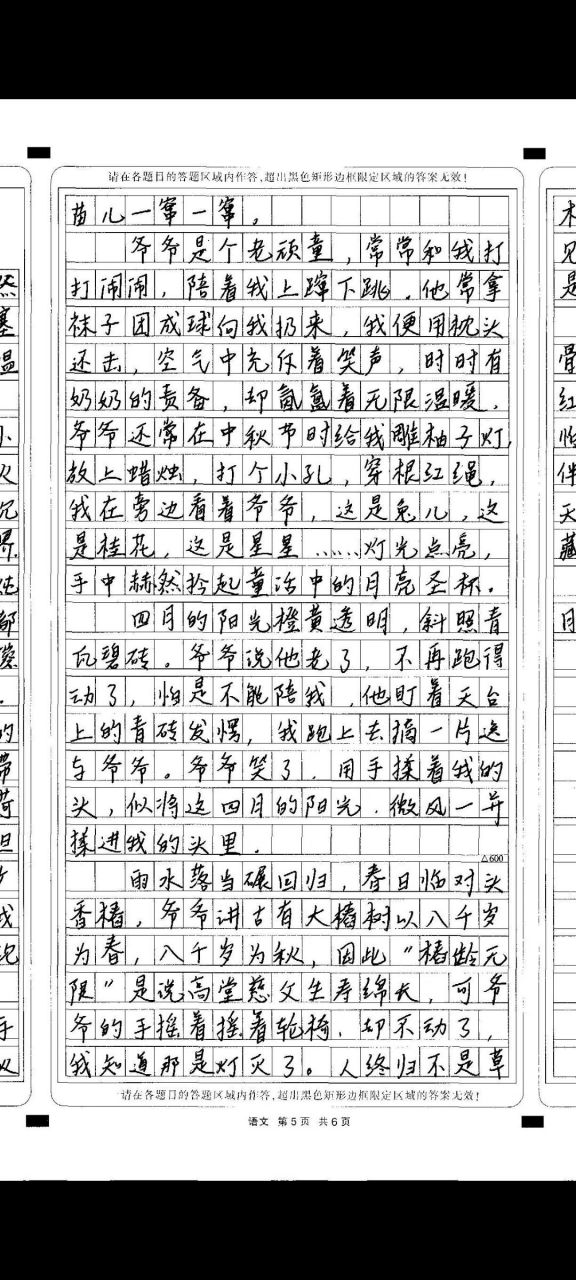 请在各题目的答题区域内作答,超出黑色矩形边框限定区域的答案无效!
苗儿一窜一窜。
爷爷是个老顽童,常常和我打
打闹闹,陪着我上蹿下跳.他常拿
袜子团成球向我扔来,我便用枕头
还击,空气中充斥着笑声,时时有
奶奶的责备,却氤氲着无限温暖.
爷爷还常在中秋节时给我雕柚子灯,
放上蜡烛,打个小孔,穿根红绳,
我在旁边看着爷爷,这是兔儿,这
是桂花,这是星星……灯光点亮,
手中赫然拎起童话中的月亮圣杯.
四月的阳光橙黄透明,斜照青
瓦碧砖。爷爷说他老了,不再跑得
动了,怕是不能陪我,他盯着天台
上的青砖发愣,我跑上去摘一片送
与爷爷。爷爷笑了.用手揉着我的
头,似将这四月的阳光.微风一并
揉进我的头里.
△600
雨水落当碾回归,春日临对头
香椿,爷爷讲古有大椿树以八千岁
为春,八千岁为秋,因此"椿龄无
限"是说高堂慈父生寿绵长,可爷
爷的手摇着摇着轮椅.却不动了,
我知道那是灯灭了。人终归不是草
请在各题目的答题区域内作答,超出黑色矩形边框限定区域的答案无效!
语文 第5页 共6页